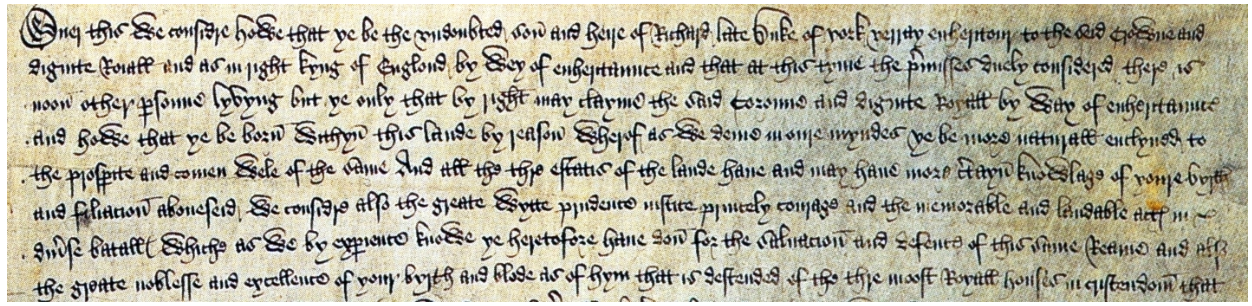 Over this we considre howe that ye be the vndoubted son and heire of Richard late Duke of york verray enheritour to the seid Crowne and
dignite Roiall and as in right kyng of Englond by wey of enheritaunce and that at this tyme the p̃misses duely considered there is
noon other p̱sonne lyvyng but ye only that by right may clayme the said Coronne and dignite Royall by way of enheritaunce
and howe that ye be born̄ withyn this lande by reason̄ wherof as we deme in oure myndes ye be more naturall enclyned to
the prosp̱ite and comen wele of the same And all the thre estatis of the lande have and may have more c̃tayn̄ knowlage of youre byrth
and filiacion̄ aboueseid we considre also the greate wytte prudence justice princely courage and the memorable and laudable act in
diũse batall whiche as we by exp̱ience knowe ye heretofore haue don̄ for the saluacion̄ and defence of this same Reame and also
the greate noblesse and excellence of your byrth and blode as of hym that is descended of the thre moost Royall houses in cristendom̄ that